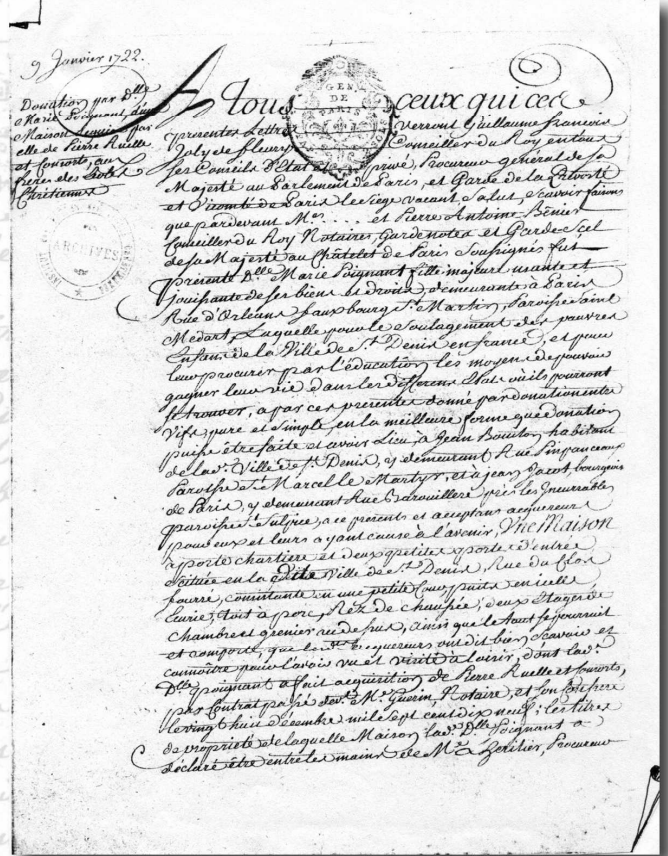 9 Janvier 1722.
Donation par Dlle
Marie Poignant, d'une
Maison acquise par
elle de Pierre Ruelle
et consorts, aux
freres des Ecoles
Chrétiennes
ARCHIVES
GEN
DE
PARIS
A tous ceux qui ces
presentes Lettres Verront, Guillaume françois
Joly de fleury Conseiller du Roy en tous
ses Conseils d'Etat et privé, Procureur général de sa
Majesté au Parlement de Paris, et Garde de la Prevosté
et Vicomté de Paris le Siege vacant, Salut, Scavoir faisons
que pardevant Mes ..... et Pierre Antoine Bénier
Conseillers du Roy Notaires, Gardenotes et Gardescel
de sa Majesté au Châtelet de Paris Soussignés fut
présente Dlle Marie Poignant fille majeure usante et
Jouissante de ses biens et droits, demeurante à Paris
Rue d'Orleans faux bourg St Martin, Paroisse Saint
Médart, Laquelle pour le Soulagement des pauvres
Enfans de la Ville de St Denis en france, et pour
leur procurer par l'éducation les moyens de pouvoir
gagner leur vie dans les differens Etats où ils pourront
se trouver, a par ces presentes donné par donation entre
Vifs, pure et simple, en la meilleure forme que donation
puisse être faite et avoir Lieu, à Jean Bouillon habitant
de lade Ville de St Denis, y demeurant Rue
Paroisse St Marcel le Martyr, et à jean Jacot bourgeois
de Paris, y demeurant Rue Barouillere près les Incurables
paroisse St Sulpice, a ce présents et acceptans acquereurs
pour eux et leurs ayant cause à l'avenir, Une Maison
à porte chartiere et deux petites portes d'entrée
Scituée en la dite Ville de St Denis, Rue du Clos
fourré, consistante en une petite Cour, puits en icelle
Eurie, toit à porc, Rez de chaussée, deux Etages de
chambre et grenier au dessus, ainsi que le tout se poursuit
et comporte, que lesds acquereurs ont dit bien Scavoir et
connoître pour l'avoir vu et visité à loisir, dont lade
Dlle Poignant a fait acquisition de Pierre Ruelle et consorts,
par Contrat passé devt Me Guerin Notaire, et son Confrere
le vingt huit décembre mil Sept cent dix neuf: les titres
de propriété de laquelle Maison lade Dlle Poignant a
déclaré être entre les mains de Me Leritier, Procureur